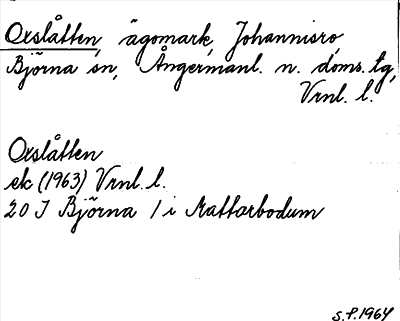 Oxslåtten, ägomark, Johannisro,
Björna sn, Ångermanl. n. doms. tg,
Vrnl. l.
Oxslåtten
ek (1963) Vrnl. l.
20 I Björna 1 i Mattarbodum
S.P. 1964